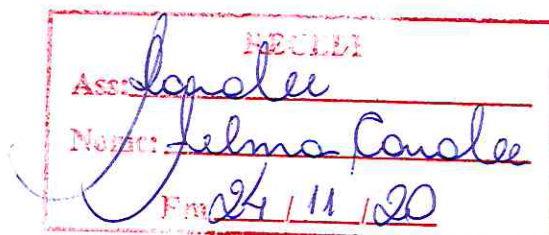 RECEBI
Ass: Candee
Nome: Telma Candee
Em 24 / 11 / 20